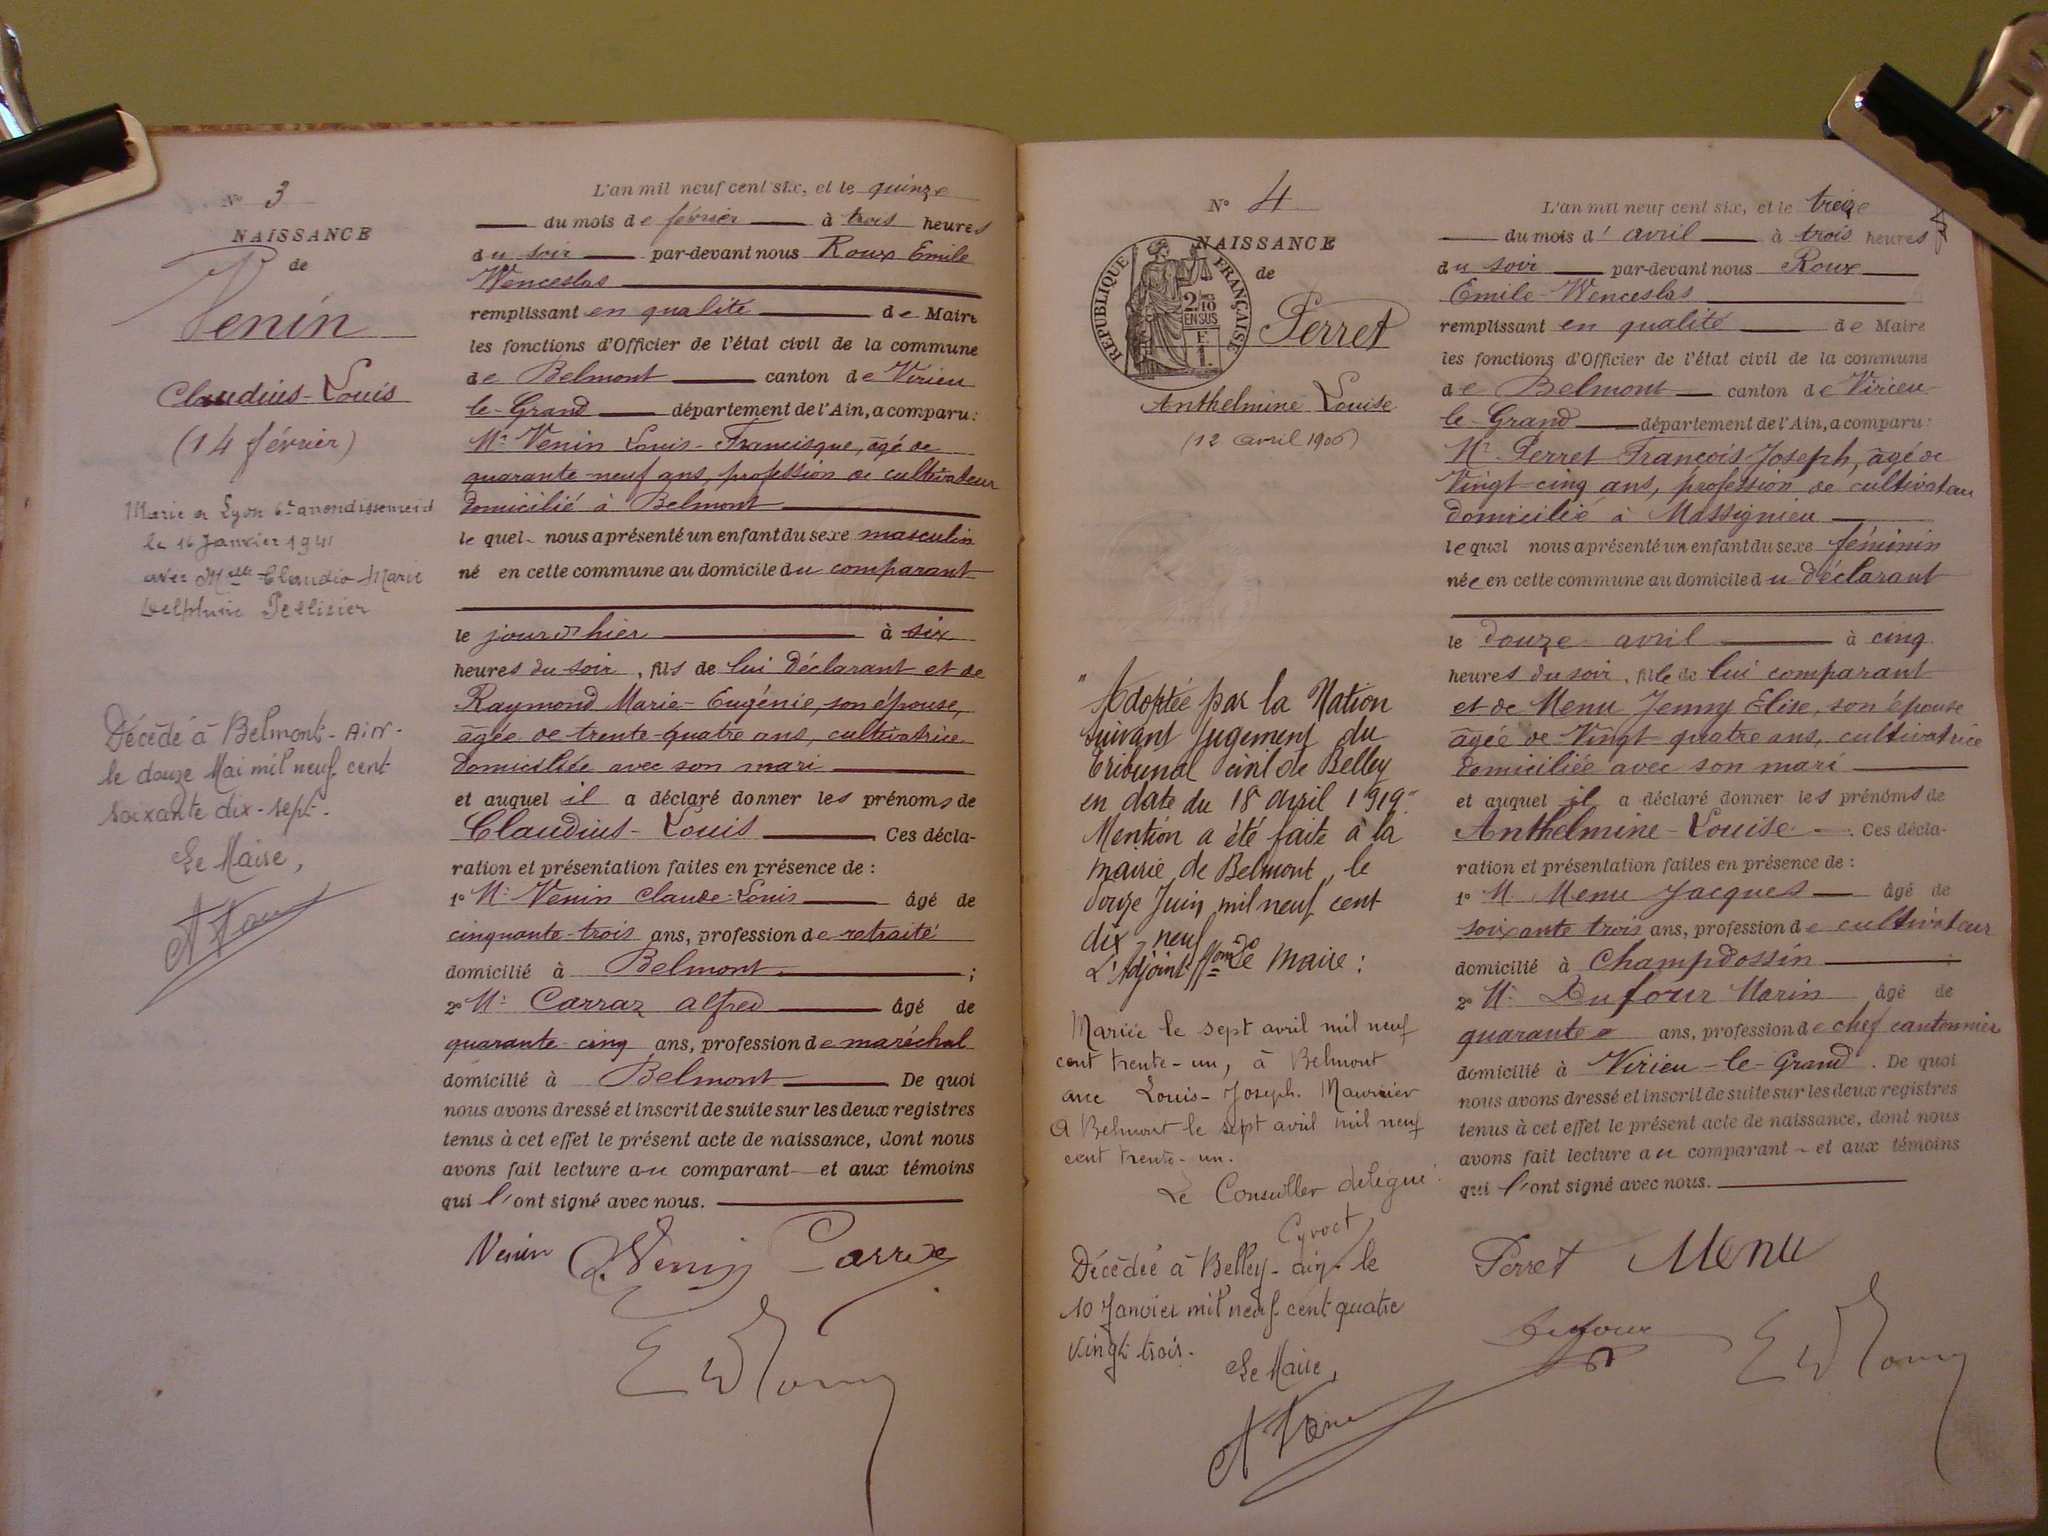 N° 3
NAISSANCE
de
Venin
Claudius-Louis
(14 février)
Marié à Lyon 6e arrondissement
le 16 Janvier 1941
avec Melle Claudia Marie
Delphine Pellisier
Décédé à Belmont-Ain-
le douze Mai mil neuf cent
soixante dix-sept.
Le Maire,
L'an mil neuf cent six, et le quinze
du mois de février à trois heures
du soir par-devant nous Roux Emile
Wenceslas
remplissant en qualité de Maire
les fonctions d'Officier de l'état civil de la commune
de Belmont canton de Virieu
le-Grand département de l'Ain, a comparu:
Mr Venin Louis-Francisque, âgé de
quarante-neuf ans, profession de cultivateur
domicilié à Belmont
lequel nous a présenté un enfant du sexe masculin
né en cette commune au domicile du comparant
le jour d'hier à six
heures du soir, fils de lui déclarant et de
Raymond Marie-Eugénie, son épouse,
âgée de trente-quatre ans, cultivatrice
domiciliée avec son mari
et auquel il a déclaré donner les prénoms de
Claudius-Louis Ces décla-
ration et présentation faites en présence de:
1° Mr Venin Claude-Louis âgé de
cinquante-trois ans, profession de retraité
domicilié à Belmont ;
2° Mr Carraz Alfred âgé de
quarante-cinq ans, profession de maréchal
domicilié à Belmont De quoi
nous avons dressé et inscrit de suite sur les deux registres
tenus à cet effet le présent acte de naissance, dont nous
avons fait lecture au comparant et aux témoins
qui l'ont signé avec nous.
Venin L. Venin Carraz
N° 4
NAISSANCE
de
REPUBLIQUE FRANÇAISE
2/10
EN SUS
Perret
Anthelmine Louise
(12 avril 1906)
"Adoptée par la Nation
suivant jugement du
tribunal civil de Belley
en date du 18 avril 1919."
Mention a été faite à la
mairie de Belmont, le
douze Juin mil neuf cent
dix neuf
L'Adjoint ffons de Maire:
Mariée le sept avril mil neuf
cent trente-un, à Belmont
avec Louis-Joseph Maurier
A Belmont le sept avril mil neuf
cent trente-un.
Le Conseiller délégué
Cyvoct
Décédée à Belley-ain-le
10 Janvier mil neuf cent quatre
vingt trois.
Le Maire,
L'an mil neuf cent six, et le treize
du mois d'avril à trois heures
du soir par-devant nous Roux
Emile-Wenceslas
remplissant en qualité de Maire
les fonctions d'Officier de l'état civil de la commune
de Belmont canton de Virieu
le-Grand département de l'Ain, a comparu:
Mr Perret François-Joseph, âgé de
vingt-cinq ans, profession de cultivateur
domicilié à Massignieu
lequel nous a présenté un enfant du sexe féminin
née en cette commune au domicile du déclarant
le douze avril à cinq
heures du soir, fille de lui comparant
et de Menu Jenny Elise, son épouse
âgée de vingt-quatre ans, cultivatrice
domiciliée avec son mari
et auquel il a déclaré donner les prénoms de
Anthelmine-Louise. Ces décla-
ration et présentation faites en présence de:
1° M. Menu Jacques âgé de
soixante trois ans, profession de cultivateur
domicilié à Champdossin ;
2° Mr Dufour Marin âgé de
quarante ans, profession de chef cantonnier
domicilié à Virieu-le-Grand. De quoi
nous avons dressé et inscrit de suite sur les deux registres
tenus à cet effet le présent acte de naissance, dont nous
avons fait lecture au comparant et aux témoins
qui l'ont signé avec nous.
Perret Menu
Dufour